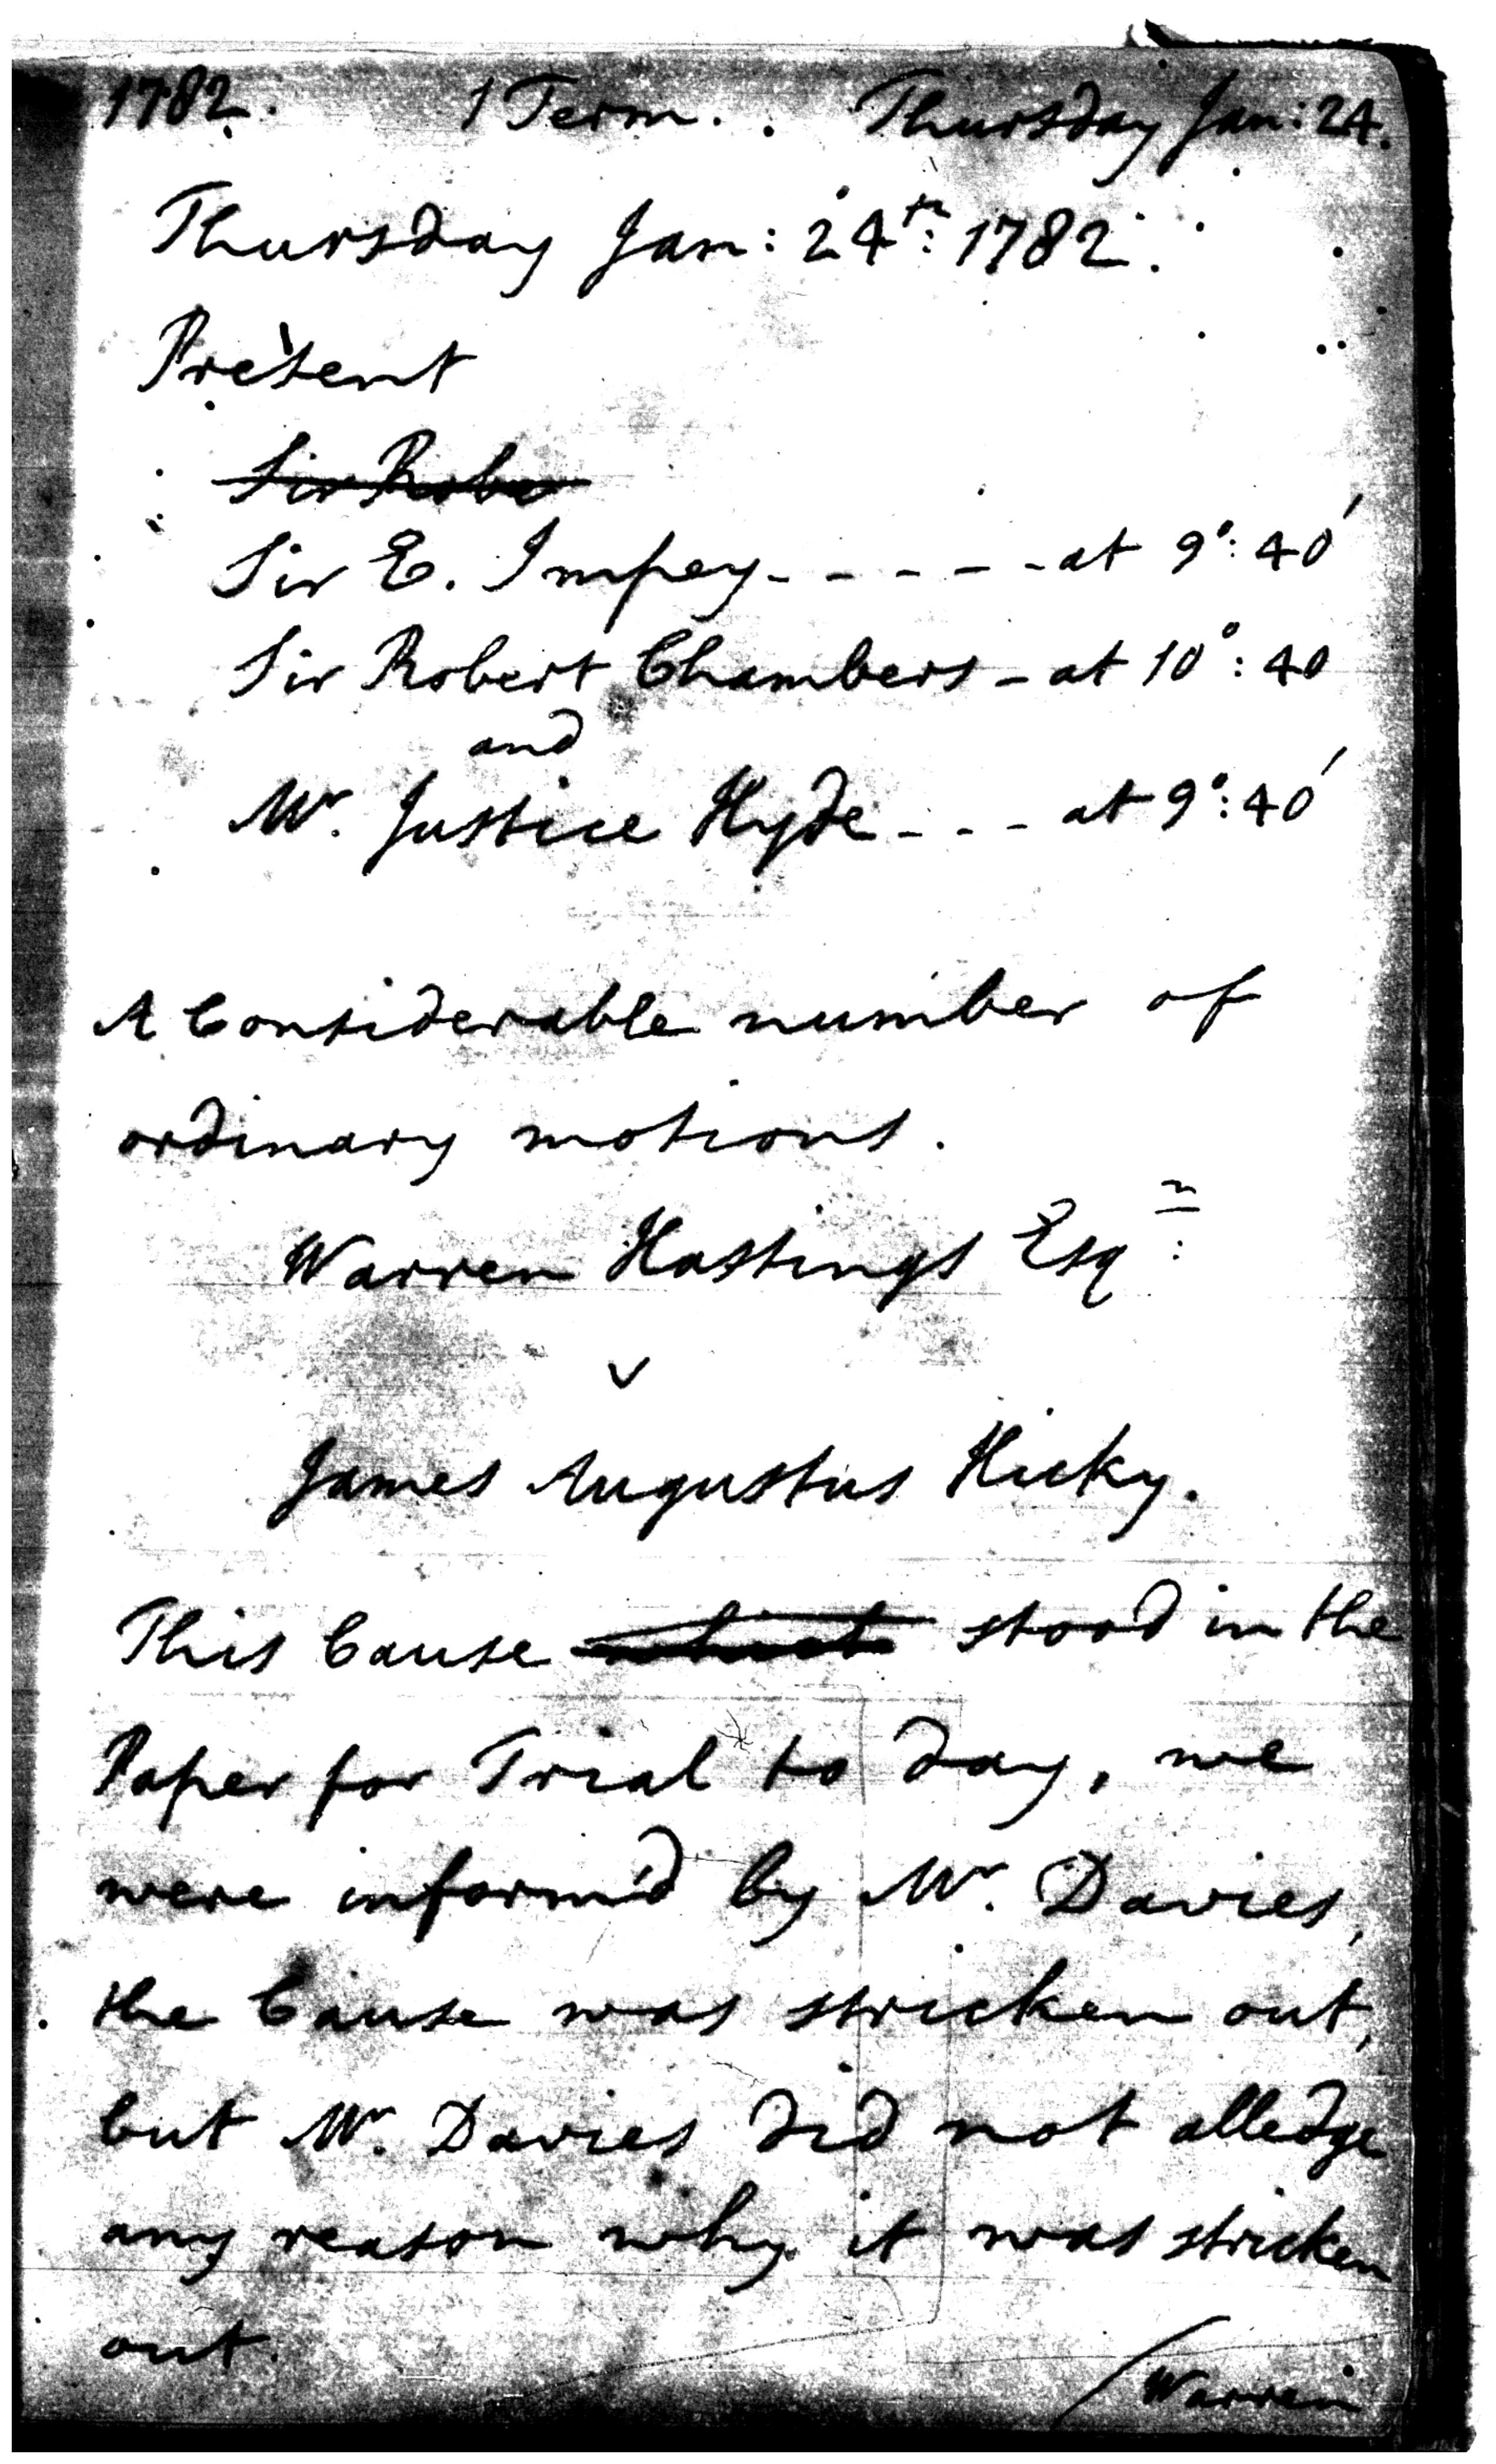 1782. 1 Term. . Thursday Jan: 24.
Thursday Jan: 24th: 1782.
Present
Sir Robe
Sir E. Impey - - - - - at 9°: 40'
Sir Robert Chambers - at 10°: 40
and
Mr. Justice Hyde - - - at 9°: 40'
A Considerable number of
ordinary motions.
Warren Hastings Esqr:
v
James Augustus Hicky.
This Cause which stood in the
Paper for Trial to day, we
were inform'd by Mr. Davies,
the Cause was stricken out,
but Mr. Davies did not alledge
any reason why it was stricken
out.
/Warren